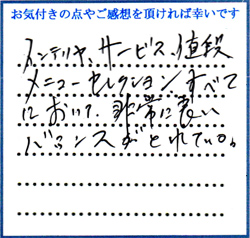 お気付きの点やご感想を頂ければ幸いです
インテリヤ、サービス、値段
メニューセレクションすべて
において、非常に良い
バランスがとれている。